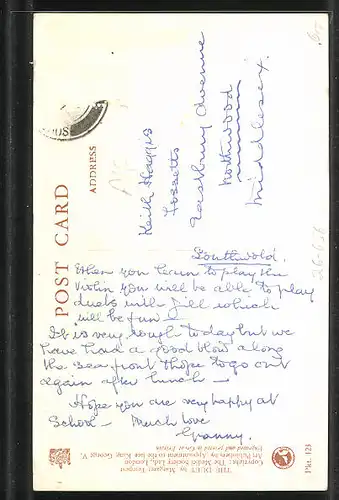 POST CARD
ADDRESS
Keith Haggis
Fossetts
Eastbury Avenue
Northwood
Middlesex.
Southwold.
When you learn to play the
violin you will be able to play
duets with Jill which
will be fun —
It is very rough today but we
have had a good blow along
the sea front & hope to go out
again after lunch —
Hope you are very happy at
School — Much love
Granny.
THE DUET by Margaret Tarrant
Copyright: The Medici Society Ltd., London
Art Publishers by Appointment to the late King George V.
Engraved and printed in Great Britain
Pkt. 121